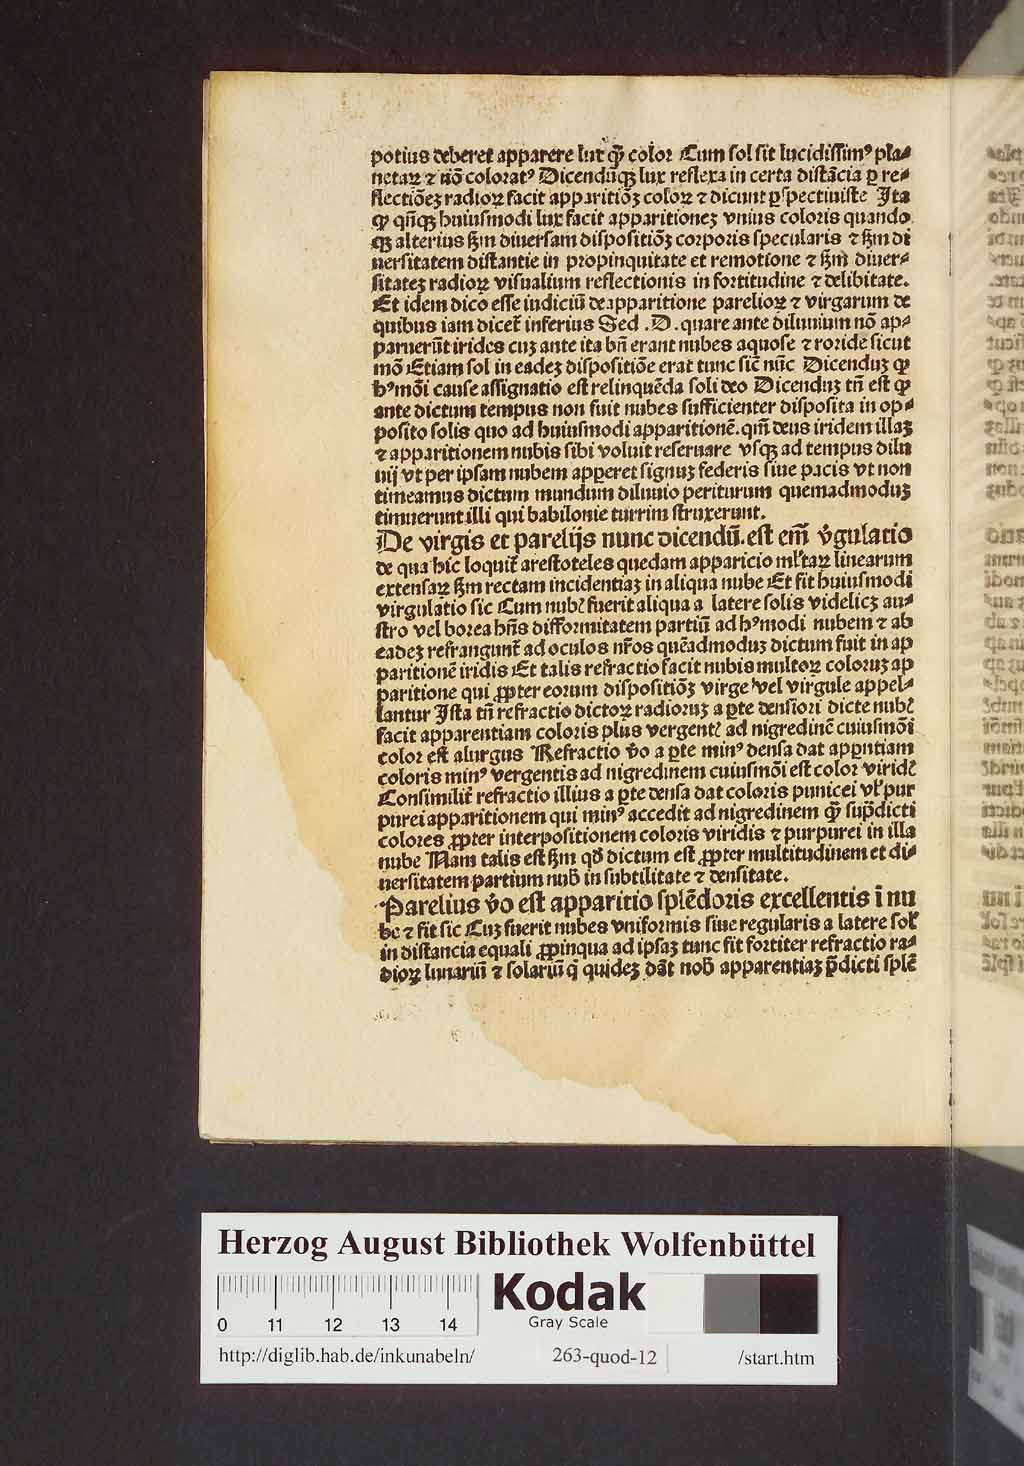 potius deberet apparere lux ꝙ̃ color Cum sol sit lucidissimꝰ pla⸗
netaꝝ ⁊ nō coloratꝰ Dicendūqꝫ lux reflexa in certa distācia ꝑ re⸗
flectiōeꝫ radioꝝ facit apparitiōꝫ coloꝝ ⁊ dicunt ꝑspectiuiste Ita
ꝙ qn̄qꝫ huiusmodi lux facit apparitioneꝫ vnius coloris quando
qꝫ alterius ẜm diuersam dispositiōꝫ corporis specularis ⁊ ẜm di
uersitatem distantie in propinquitate et remotione ⁊ ẜm diuer⸗
sitateꝫ radioꝝ visualium reflectionis in fortitudine ⁊ delibitate.
Et idem dico esse iudiciū de apparitione parelioꝝ ⁊ virgarum de
quibus iam dicet᷑ inferius Sed .D. quare ante diluuium nō ap⸗
paruerūt irides cuꝫ ante ita bn̄ erant nubes aquose ⁊ roride sicut
mō Etiam sol in eadeꝫ dispositiōe erat tunc sic̄ nūc Dicenduꝫ ꝙ
hꝰmōi cause assignatio est relinquēda soli deo Dicenduꝫ tn̄ est ꝙ
ante dictum tempus non fuit nubes sufficienter disposita in op⸗
posito solis quo ad huiusmodi apparitionē. qm̄ deus iridem illaꝫ
⁊ apparitionem nubis sibi voluit reseruare vsqꝫ ad tempus dilu
uij vt per ipsam nubem apꝑeret signuꝫ federis siue pacis vt non
timeamus dictum mundum diluuio periturum quemadmoduꝫ
timuerunt illi qui babilonie turrim struxerunt.
De virgis et parelijs nunc dicendū. est em̄ v̓gulatio
de qua hic loquit᷑ arestoteles quedam apparicio ml̓taꝝ linearum
extensaꝝ ẜm rectam incidentiaꝫ in aliqua nube Et fit huiusmodi
virgulatio sic Cum nub᷑ fuerit aliqua a latere solis videlicꝫ au⸗
stro vel borea hn̄s difformitatem partiū ad hꝰmodi nubem ⁊ ab
eadeꝫ refrangunt᷑ ad oculos nr̄os quēadmoduꝫ dictum fuit in ap
paritionē iridis Et talis refractio facit nubis multoꝝ coloruꝫ ap
paritione qui ꝓpter eorum dispositiōꝫ virge vel virgule appel⸗
lantur Ista tn̄ refractio dictoꝝ radioruꝫ a ꝑte densiori dicte nub᷑
facit apparentiam coloris plus vergent᷑ ad nigredinē cuiusmōi
color est alurgus Refractio v̓o a ꝑte minꝰ densa dat appn̄tiam
coloris minꝰ vergentis ad nigredinem cuiusmōi est color virid᷑
Consimilit᷑ refractio illius a ꝑte densa dat coloris punicei vl̓ pur
purei apparitionem qui minꝰ accedit ad nigredinem ꝙ̃ sup̄dicti
colores ꝓpter interpositionem coloris viridis ⁊ purpurei in illa
nube Nam talis est ẜm qd̓ dictum est ꝓpter multitudinem et di⸗
uersitatem partium nub᷑ in subtilitate ⁊ densitate.
Parelius v̓o est apparitio splēdoris excellentis ī nu
be ⁊ fit sic Cuꝫ fuerit nubes vniformis siue regularis a latere sol᷑
in distancia equali ꝓpinqua ad ipsaꝫ tunc fit fortiter refractio ra⸗
dioꝝ lunariū ⁊ solariū q̄ quideꝫ dāt nob᷑ apparentiaꝫ p̄dicti splē
Herzog August Bibliothek Wolfenbüttel
Kodak
Gray Scale
0 11 12 13 14
http://diglib.hab.de/inkunabeln/ 263-quod-12 /start.htm